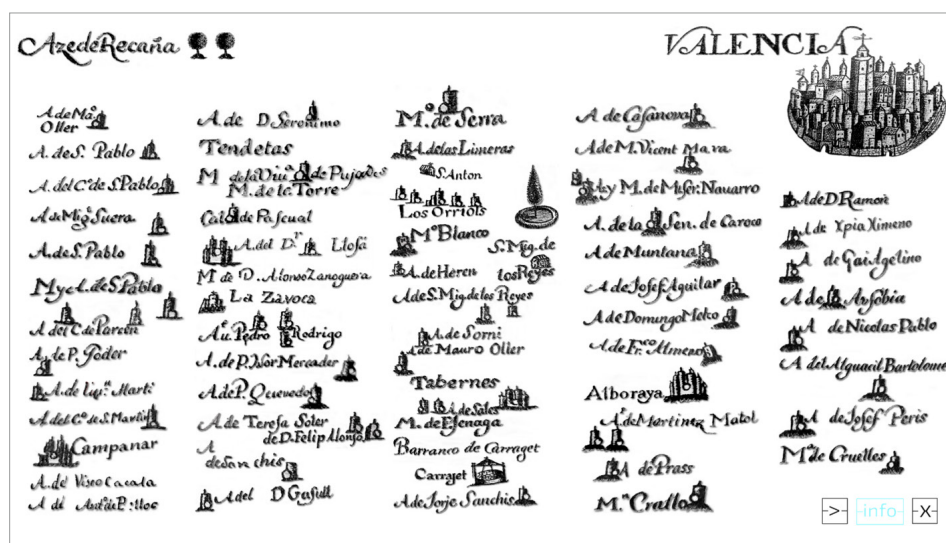 AzedeRecaña
VALENCIA
A. de Mª.
Oller
A. de S. Pablo
A. del Cº de S. Pablo
A. de Migl Suera
A. de S. Pablo
M y A. de S. Pablo
A. del C. de
A. de P.
A. de Martí
A. del Cº de S. Martin
Campanar
A. de
A. de
A. de D. Seronimo
Tendetas
M de la Viuª de Pujades
M. de la Torre
Cal de Pascual
A. del Dr Llosá
M de D. Alonso Zanoguera
La Zavoca
Au. Pedro Rodrigo
A. de P. Mercader
A. de P. Quevedo
A de Teresa Soler
de D. Felip Alonso
A
de Sanchis
A del D Gasull
M. de Serra
A. de las Limeras
S. Anton
Los Orriols
Mº Blanco
S. Mig. de
los Reyes
A. de Heren
A de S. Mig de los Reyes
A. de Sorni
A de Mauro Oller
Tabernes
A de Sales
M. de Esenaga
Barranco de Carraget
Carrajet
A de Jorje Sanchis
A de Casanova
A de M. Vicent Mara
A y M. de Navarro
A. de la Sen. de
A de Muntana
A de Josef Aguilar
A de Domingo
A de Frco Almeno
Alboraya
A de Martinez Matol
A de Prass
Mº Crallo
A de D Ramon
A de Xpia Ximeno
A de
A de
A de Nicolas Pablo
A del Alguacil Bartolome
A de Josef Peris
Mª de Cruelles
> info X